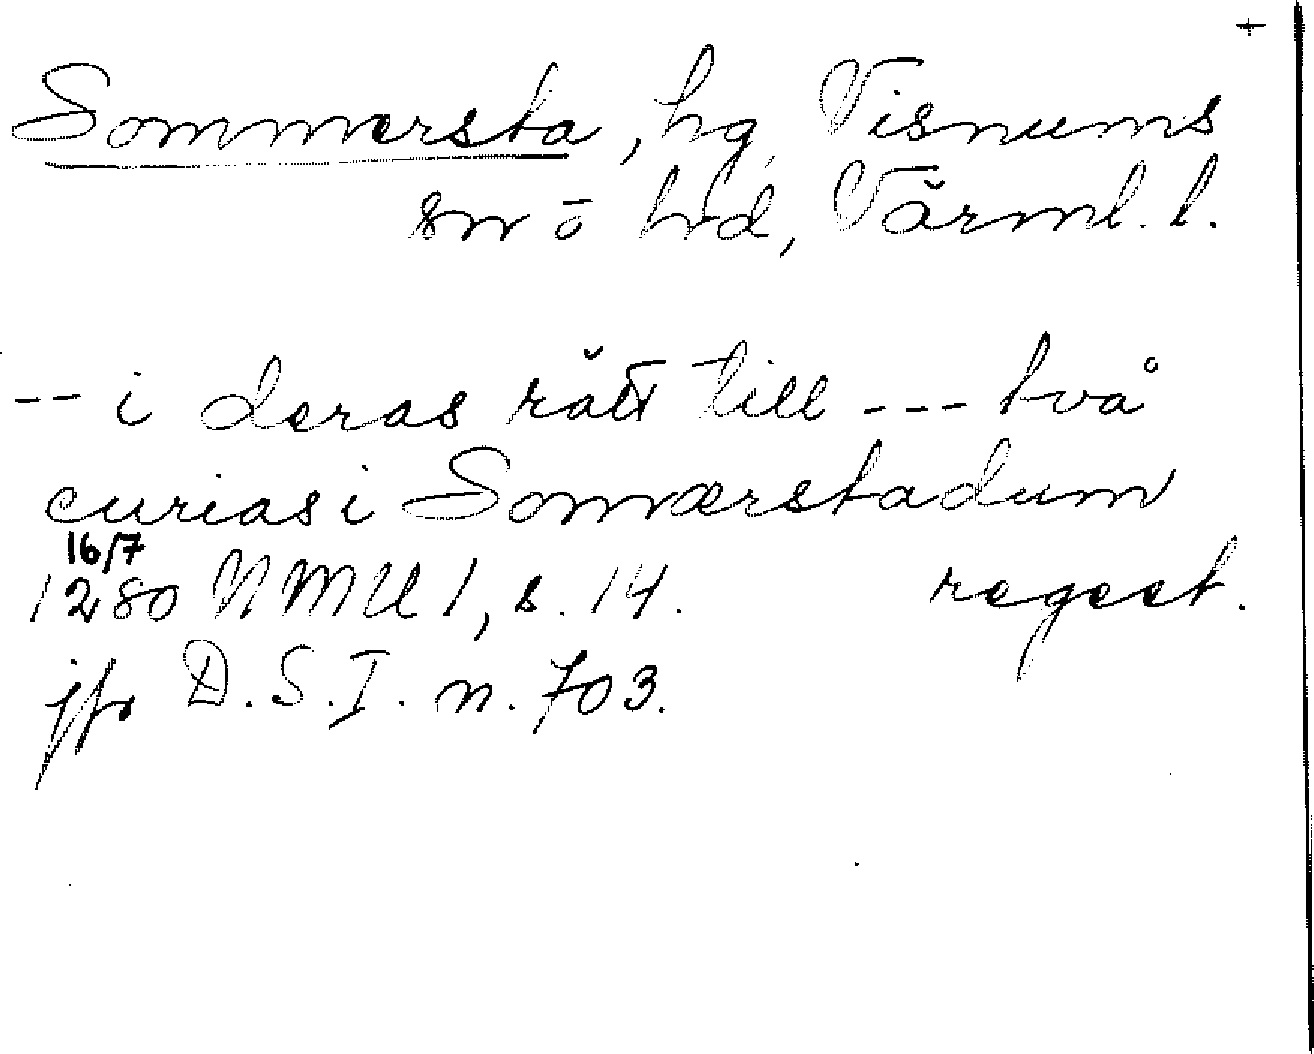 +
Sommersta, hg, Visnums
sn ō hd, Värml. l.
-- i deras rätt till --- två
curias i Somærstadum
16/7
1280 NMU 1, s. 14. regest.
jfr D.S.I. n. 703.